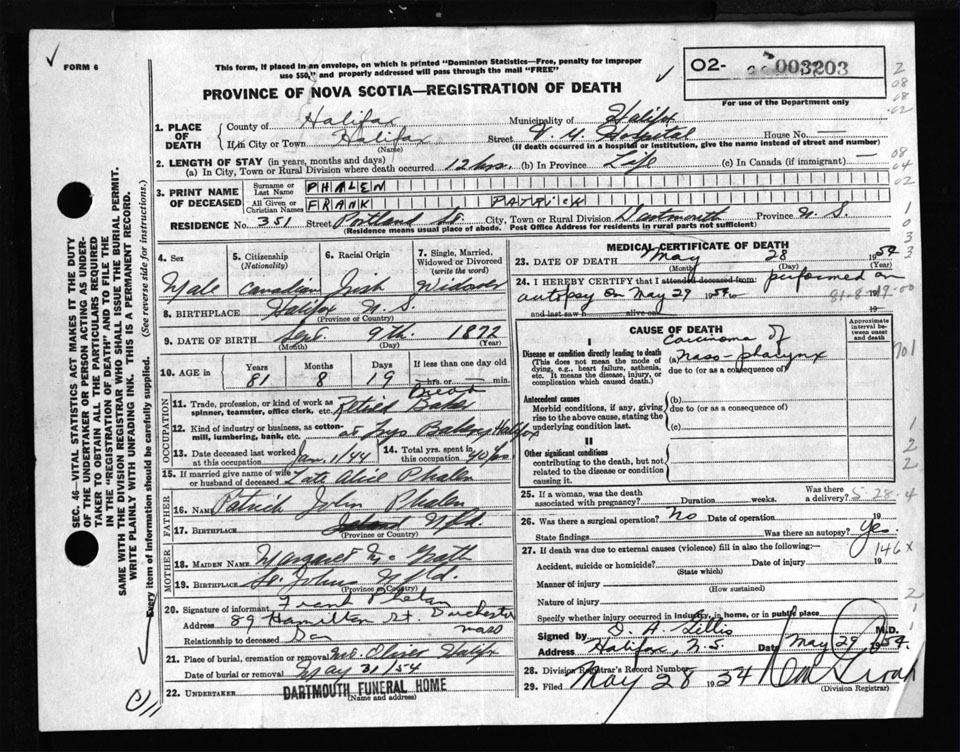 FORM 6
This form, if placed in an envelope, on which is printed "Dominion Statistics—Free, penalty for improper
use $50," and properly addressed will pass through the mail "FREE"
PROVINCE OF NOVA SCOTIA—REGISTRATION OF DEATH
O2- 003203
For use of the Department only
1. PLACE OF DEATH
County of Halifax Municipality of Halifax
If in City or Town Halifax Street V. G. Hospital House No. —
(Name) (If death occurred in a hospital or institution, give the name instead of street and number)
2. LENGTH OF STAY (in years, months and days)
(a) In City, Town or Rural Division where death occurred 12 hrs. (b) In Province Life (c) In Canada (if immigrant) —
3. PRINT NAME OF DECEASED
Surname or Last Name PHALEN
All Given or Christian Names FRANK PATRICK
RESIDENCE No. 351 Street Portland St. City, Town or Rural Division Dartmouth Province N. S.
(Residence means usual place of abode. Post Office Address for residents in rural parts not sufficient)
4. Sex
Male
5. Citizenship (Nationality)
Canadian
6. Racial Origin
Irish
7. Single, Married, Widowed or Divorced (write the word)
Widower
8. BIRTHPLACE Halifax N. S.
(Province or Country)
9. DATE OF BIRTH Sept. 9th. 1872
(Month) (Day) (Year)
10. AGE in Years Months Days If less than one day old
81 8 19 hrs. or min.
OCCUPATION
11. Trade, profession, or kind of work as spinner, teamster, office clerk, etc. Retired Bread Baker
12. Kind of industry or business, as cotton-mill, lumbering, bank, etc. at Bakery Halifax
13. Date deceased last worked at this occupation Jan. 1/44
14. Total yrs. spent in this occupation 40 yrs
15. If married give name of wife or husband of deceased Late Alice Phalen
FATHER
16. Name Patrick John Phalen
17. Birthplace Nfld.
(Province or Country)
MOTHER
18. MAIDEN NAME Margaret Mc Grath
19. BIRTHPLACE St. Johns Nfld.
(Province or Country)
20. Signature of informant Frank Phelan
Address 89 Hamilton St. Dorchester Mass
Relationship to deceased Son
21. Place of burial, cremation or removal Mt. Olivet Halifx
Date of burial or removal May 31/54
22. UNDERTAKER DARTMOUTH FUNERAL HOME
(Name and Address)
MEDICAL CERTIFICATE OF DEATH
23. DATE OF DEATH May 28 1954
(Month) (Day) (Year)
24. I HEREBY CERTIFY that I attended deceased from: performed an
autopsy on May 29 1954 to 19
81-8-19-00
and last saw h alive on 19
CAUSE OF DEATH
Approximate interval between onset and death
I
Disease or condition directly leading to death
(This does not mean the mode of dying, e.g., heart failure, asthenia, etc. It means the disease, injury, or complication which caused death.)
(a) Carcinoma of naso-pharynx
due to (or as a consequence of)
Antecedent causes
Morbid conditions, if any, giving rise to the above cause, stating the underlying condition last.
(b)
due to (or as a consequence of)
(c)
II
Other significant conditions
contributing to the death, but not related to the disease or condition causing it.
25. If a woman, was the death associated with pregnancy? Duration weeks. Was there a delivery?
5-28-4
26. Was there a surgical operation? No Date of operation 19
State findings Was there an autopsy? Yes
27. If death was due to external causes (violence) fill in also the following:—
146x
Accident, suicide or homicide? Date of injury 19
(State which)
Manner of injury
(How sustained)
Nature of injury
Specify whether injury occurred in industry, in home, or in public place
Signed by D. A. Gillis M.D.
Address Halifax, N.S. Date May 29 1954
28. Division Registrar's Record Number
29. Filed May 28 1954
(Division Registrar)
SEC. 46—VITAL STATISTICS ACT MAKES IT THE DUTY
OF THE UNDERTAKER OR PERSON ACTING AS UNDER-
TAKER TO OBTAIN ALL THE PARTICULARS REQUIRED
IN THE "REGISTRATION OF DEATH" AND TO FILE THE
SAME WITH THE DIVISION REGISTRAR WHO SHALL ISSUE THE BURIAL PERMIT.
WRITE PLAINLY WITH UNFADING INK. THIS IS A PERMANENT RECORD.
Every item of information should be carefully supplied. (See reverse side for instructions.)